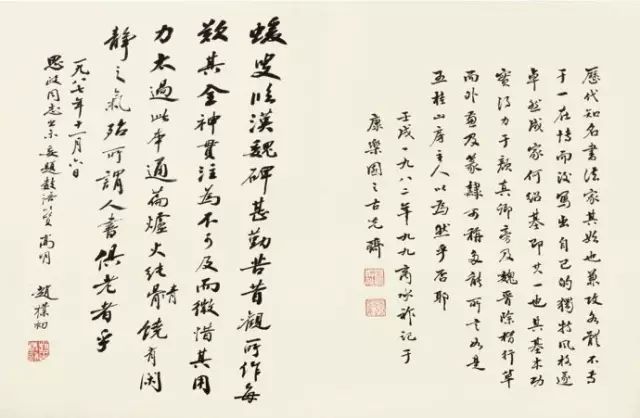 歷代知名書法家其始也兼攻各體不專
于一在博而後寫出自己的獨特風格遂
卓然成家何紹基即其一也其基本功
實得力于顏真卿旁及魏晉除楷行草
而外兼及篆隸可稱多能所言如是
五桂山房主人以為然乎否耶
壬戌一九八二年九九商承祚記于
康樂園之古先齋
蝯叟臨漢魏碑甚勤苦昔觀所作每
歎其全神貫注為不可及而微惜其用
力太過此本通篇爐火純青饒有閑
靜之氣殆所謂人書俱老者乎
一九八七年十一月六日
同志出示妄題數語以質高明
趙樸初